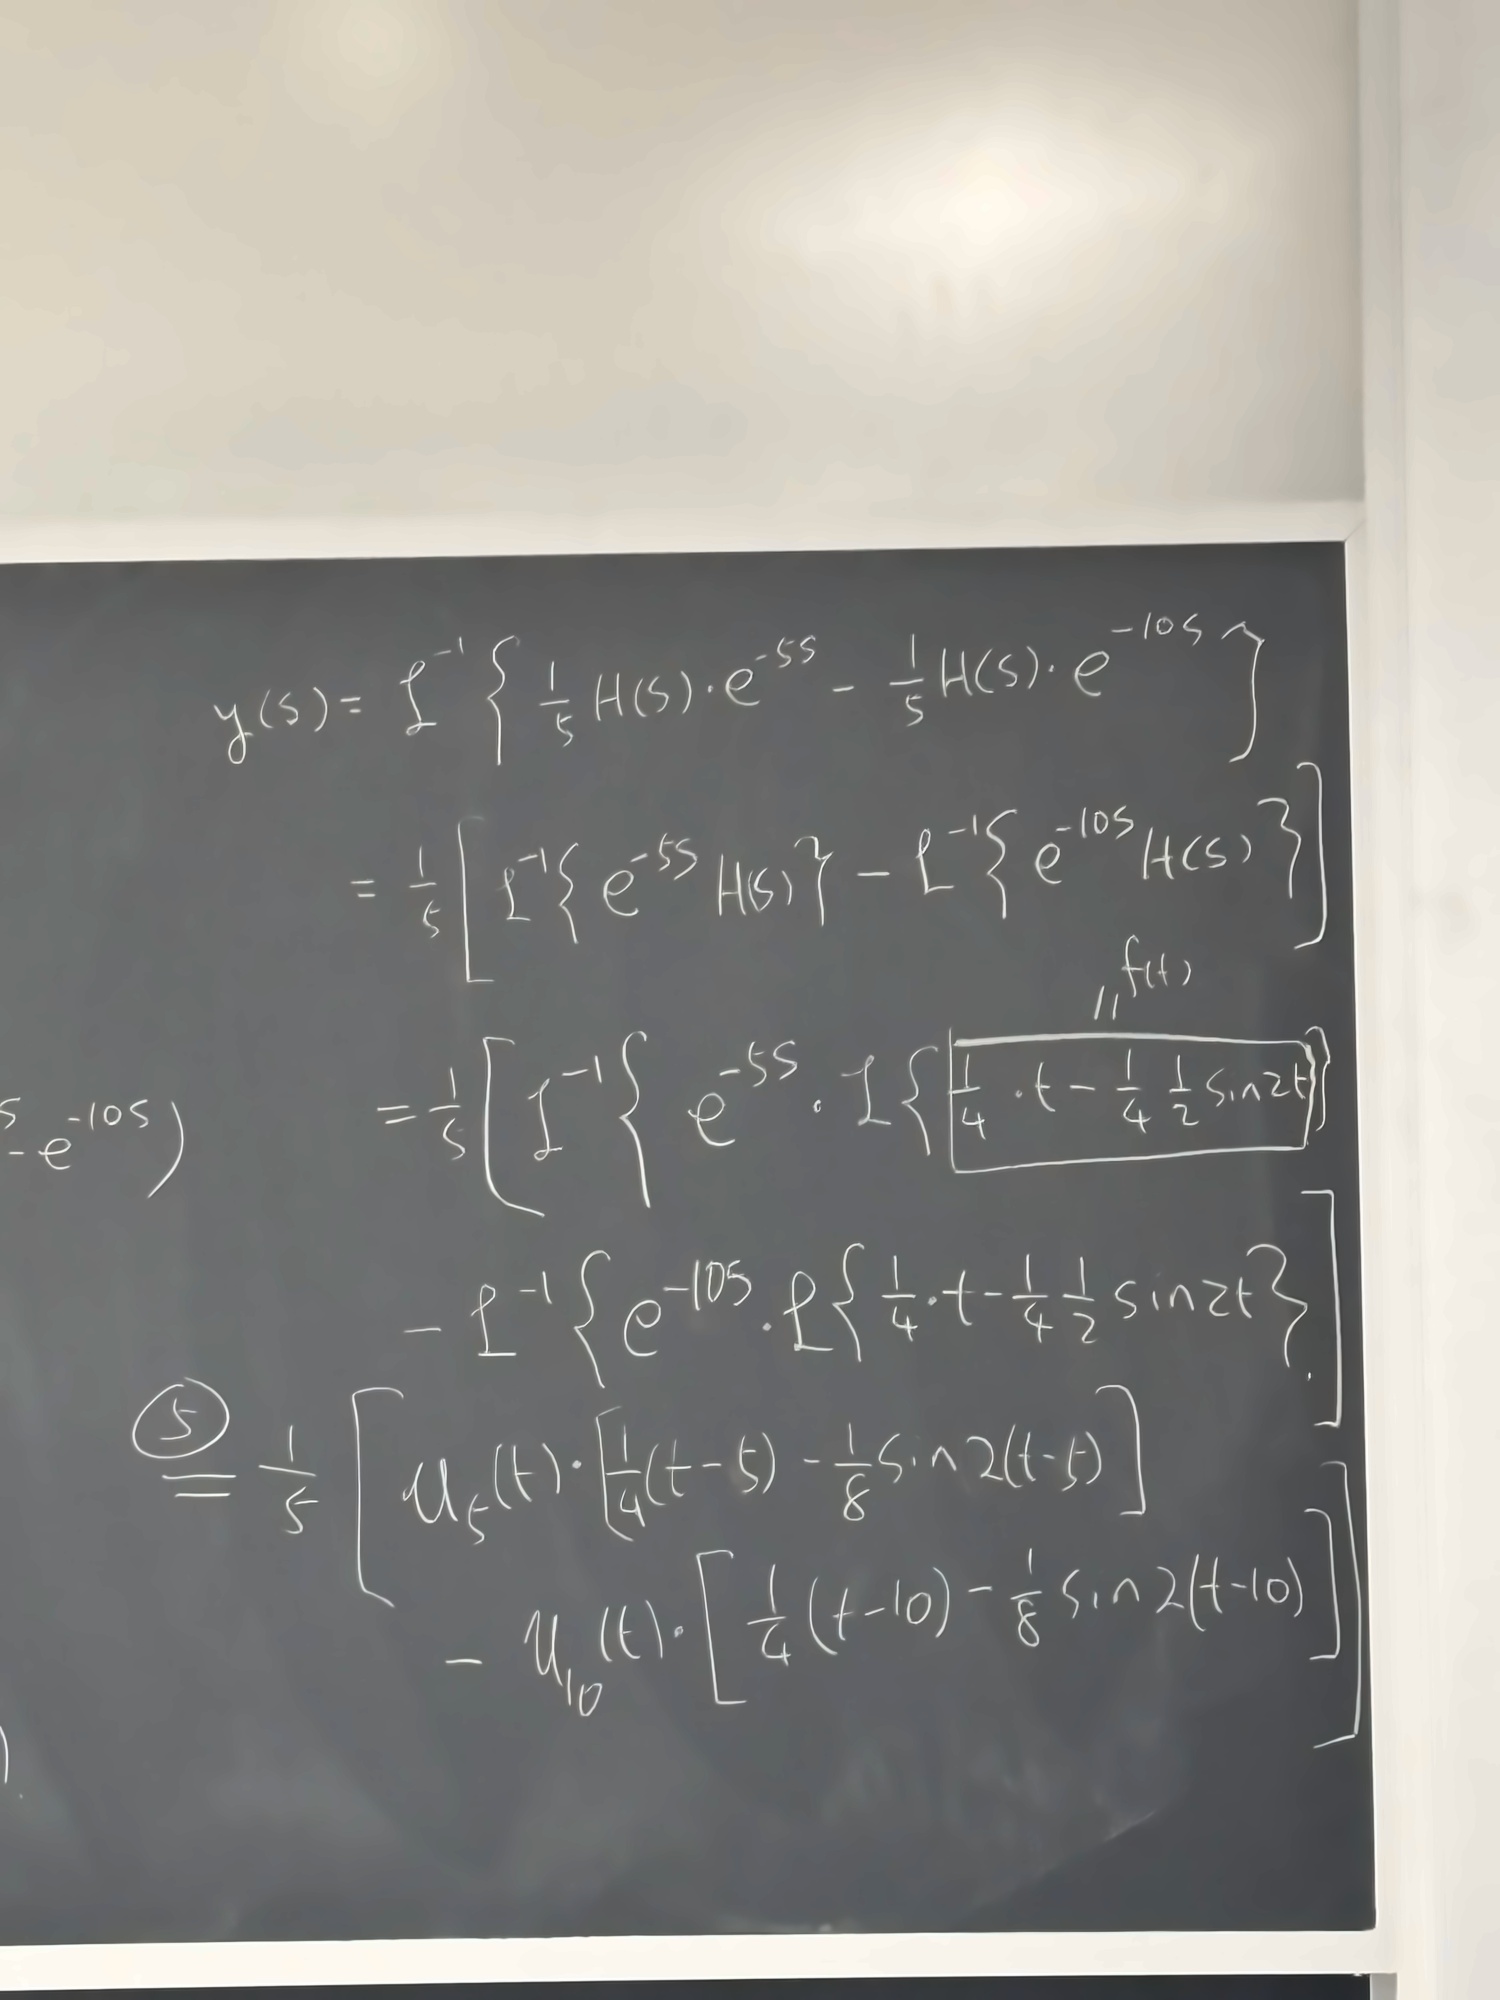 y(s) = ℒ⁻¹ { 1/5 H(s) · e^{-5s} - 1/5 H(s) · e^{-10s} }
= 1/5 [ ℒ⁻¹{ e^{-5s} H(s) } - ℒ⁻¹{ e^{-10s} H(s) } ]
" f(t)
= 1/5 [ ℒ⁻¹{ e^{-5s} · ℒ{ 1/4 · t - 1/4 1/2 sin2t }
- e^{-10s} )
- ℒ⁻¹{ e^{-10s} · ℒ{ 1/4 · t - 1/4 1/2 sin2t } ]
⑤
= 1/5 [ u_5(t) · [ 1/4 (t-5) - 1/8 sin2(t-5) ]
- u_10(t) · [ 1/4 (t-10) - 1/8 sin2(t-10) ] ]